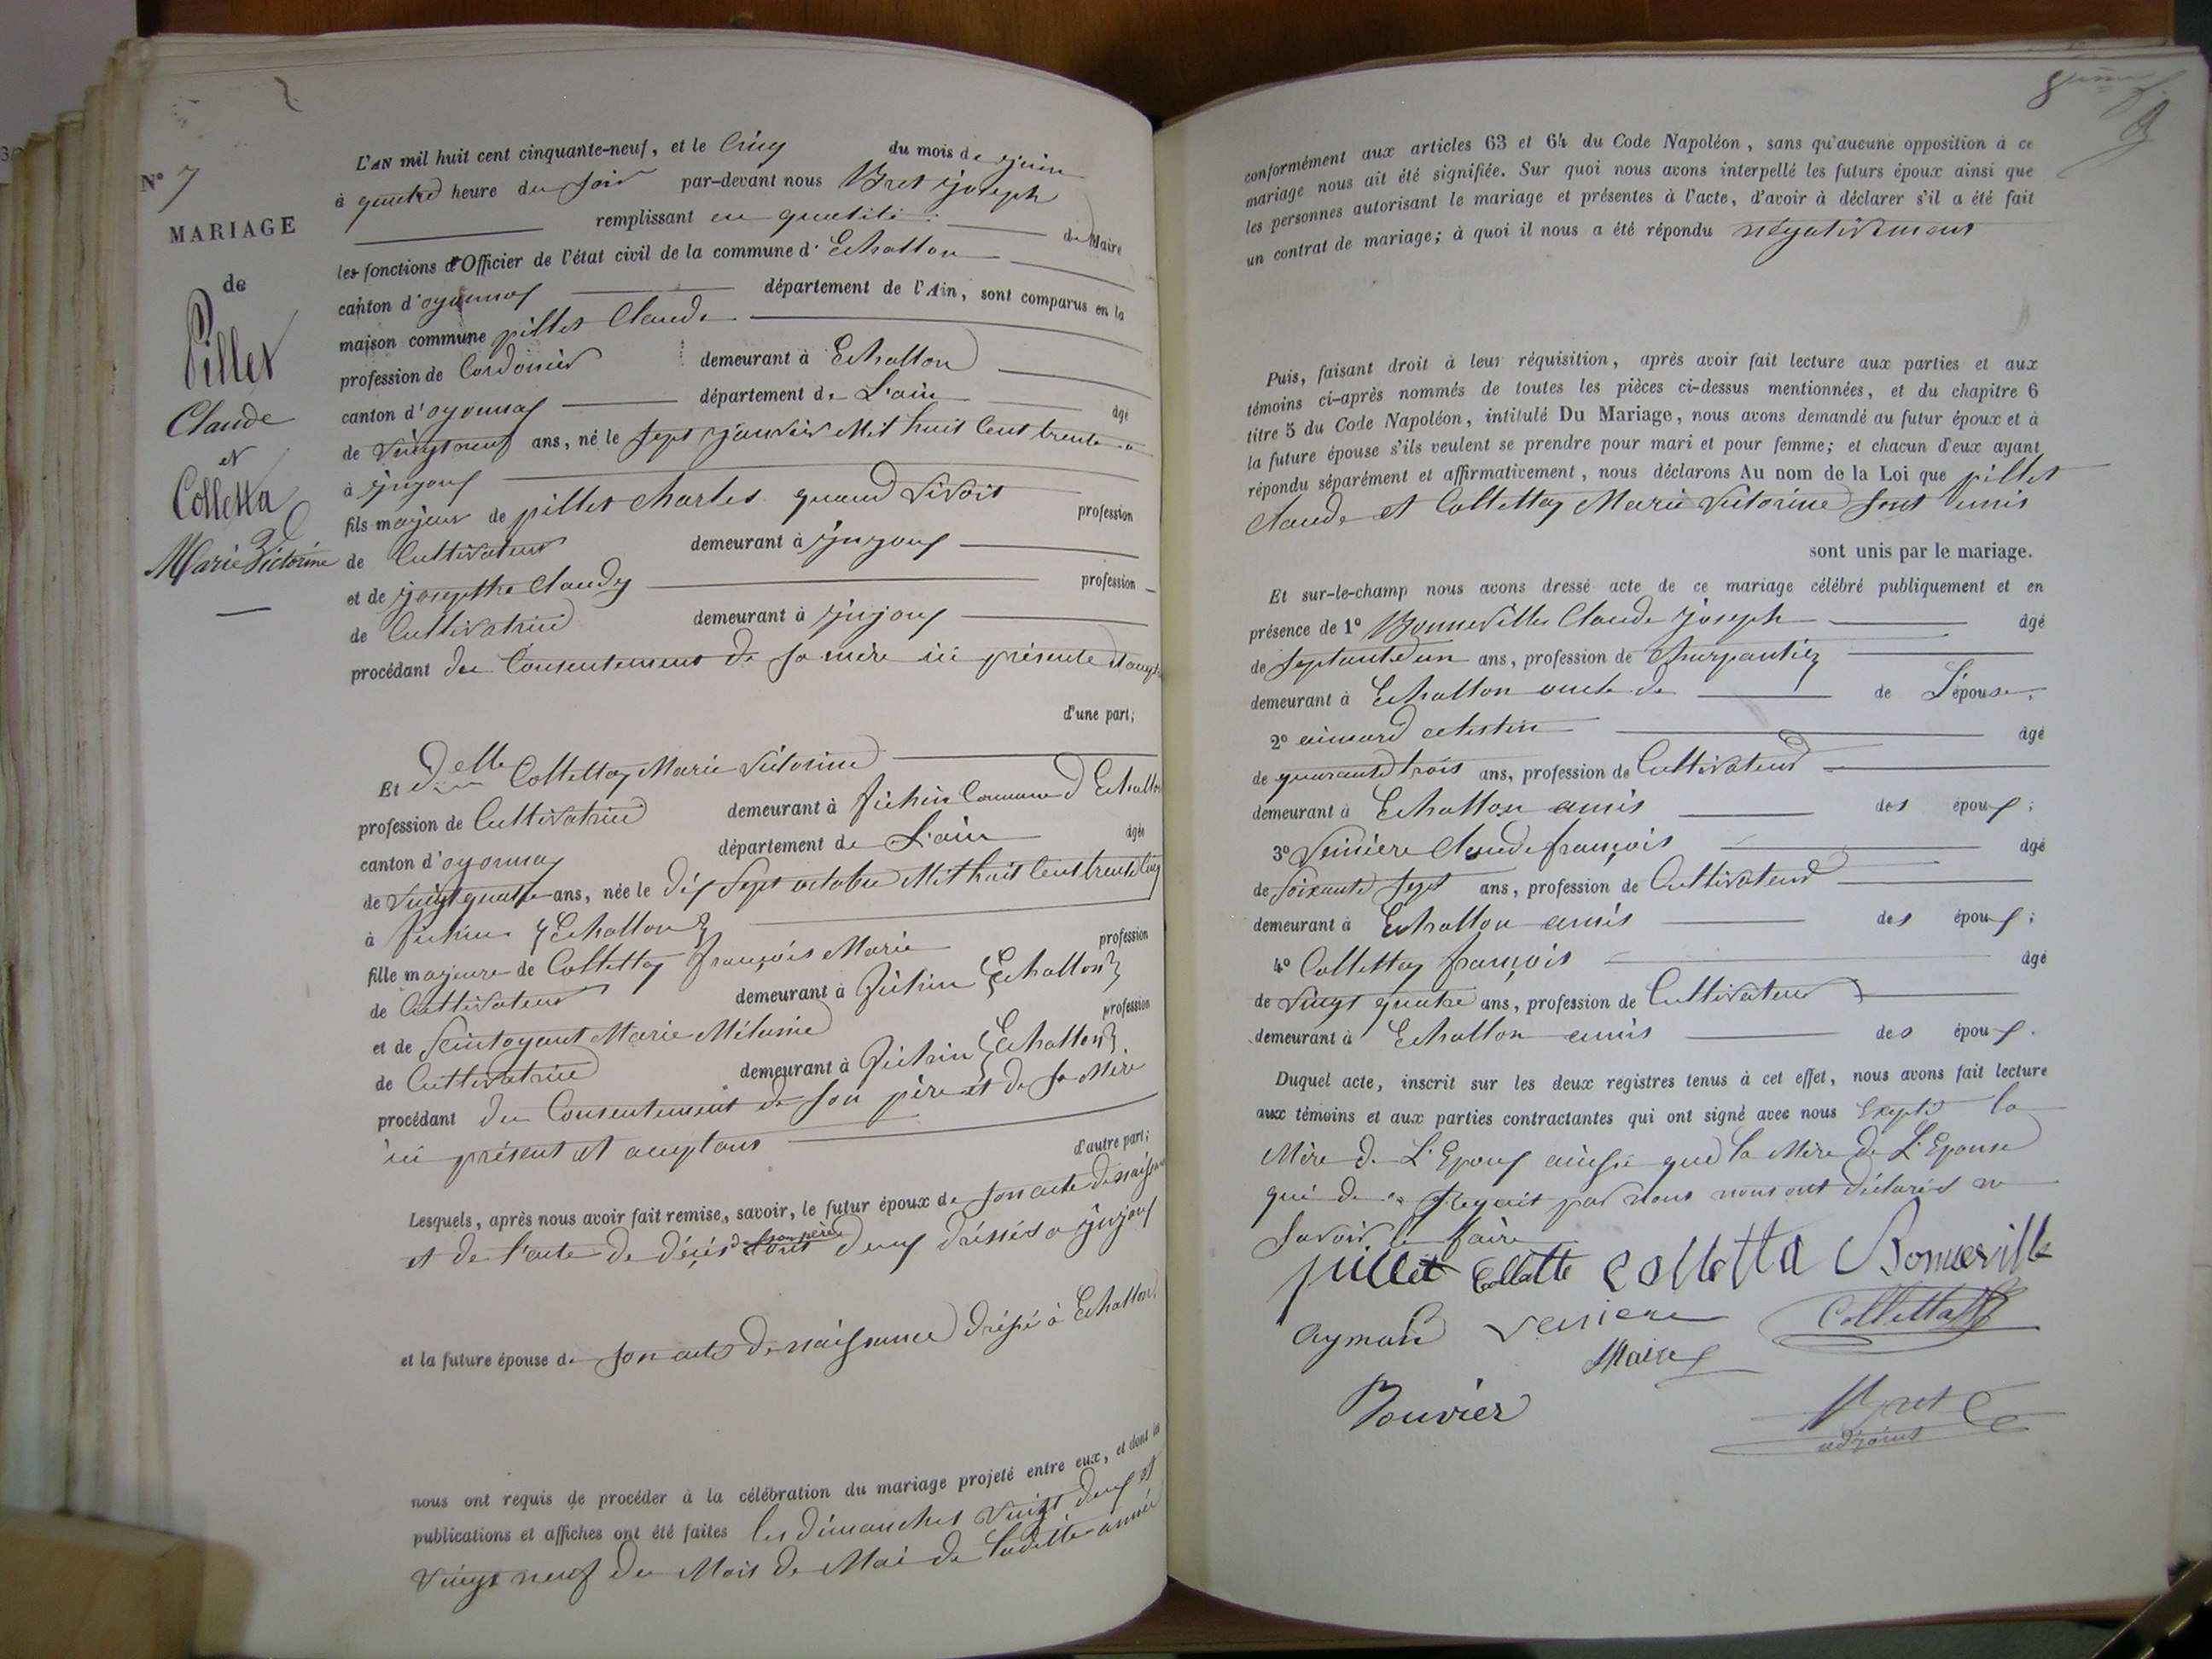 N° 7
MARIAGE
de
Pillet
Claude
et
Colletta
Marie Victorine
L'AN mil huit cent cinquante-neuf, et le Cinq du mois de Juin
à quatre heure du soir par-devant nous Bret Joseph
remplissant en qualité de Maire
les fonctions d'Officier de l'état civil de la commune d' Echallon
canton d'oyonnax département de l'Ain, sont comparus en la
maison commune pillet Claude
profession de Cordonier demeurant à Echallon
canton d'oyonnax département de L'ain âgé
de vingt neuf ans, né le sept janvier Mil huit Cent trente
à injoux
fils majeur de pillet charles quand vivoit profession
de Cultivateur demeurant à injoux
et de josepthe Claudy profession
de Cultivatrice demeurant à injoux
procédant du Consentement de sa mère ici présente
d'une part;
Et Delle Collettaz Marie Victorine
profession de Cultivatrice demeurant à Commune d'Echallon
canton d'oyonnax département de L'ain âgée
de vingt quatre ans, née le dix sept octobre Mil huit Cent trente Cinq
à {Echallon}
fille majeure de Collettaz françois Marie profession
de Cultivateur demeurant à {Echallon}
et de Marie Mélanie profession
de Cultivatrice demeurant à {Echallon}
procédant du Consentement de son père et de sa Mère
ici présent et aceptans
d'autre part;
Lesquels, après nous avoir fait remise, savoir, le futur époux de son acte de naissance
et de l'acte de décès de son père tous deux dréssés a injoux
et la future épouse de son acte de naissance dréssé à Echallon
nous ont requis de procéder à la célébration du mariage projeté entre eux, et dont les
publications et affiches ont été faites les dimanches vingt deux et
vingt neuf du Mois de Mai de ladite année
conformément aux articles 63 et 64 du Code Napoléon, sans qu'aucune opposition à ce
mariage nous ait été signifiée. Sur quoi nous avons interpellé les futurs époux ainsi que
les personnes autorisant le mariage et présentes à l'acte, d'avoir à déclarer s'il a été fait
un contrat de mariage; à quoi il nous a été répondu négativement
Puis, faisant droit à leur réquisition, après avoir fait lecture aux parties et aux
témoins ci-après nommés de toutes les pièces ci-dessus mentionnées, et du chapitre 6
titre 5 du Code Napoléon, intitulé Du Mariage, nous avons demandé au futur époux et à
la future épouse s'ils veulent se prendre pour mari et pour femme; et chacun d'eux ayant
répondu séparément et affirmativement, nous déclarons Au nom de la Loi que pillet
Claude et Collettaz Marie Victorine sont unis
sont unis par le mariage.
Et sur-le-champ nous avons dressé acte de ce mariage célébré publiquement et en
présence de 1° Bonneville Claude Joseph âgé
de septante un ans, profession de Charpantiez
demeurant à Echallon oncle de de L'épouse,
2° aimard celestin âgé
de quarante trois ans, profession de Cultivateur
demeurant à Echallon amis des époux;
3° Claude françois âgé
de soixante sept ans, profession de Cultivateur
demeurant à Echallon amis des époux;
4° Collettaz françois âgé
de vingt quatre ans, profession de Cultivateur
demeurant à Echallon amis des époux.
Duquel acte, inscrit sur les deux registres tenus à cet effet, nous avons fait lecture
aux témoins et aux parties contractantes qui ont signé avec nous Excepté la
Mère de L'Epoux ainsie que la Mère de L'Epouse
qui de ce par nous nous ont déclarés ne
savoir le faire
pillet Collette colletta Bonneville
Aymard Collettaz
Maire
Bouvier
Bret
adjoint